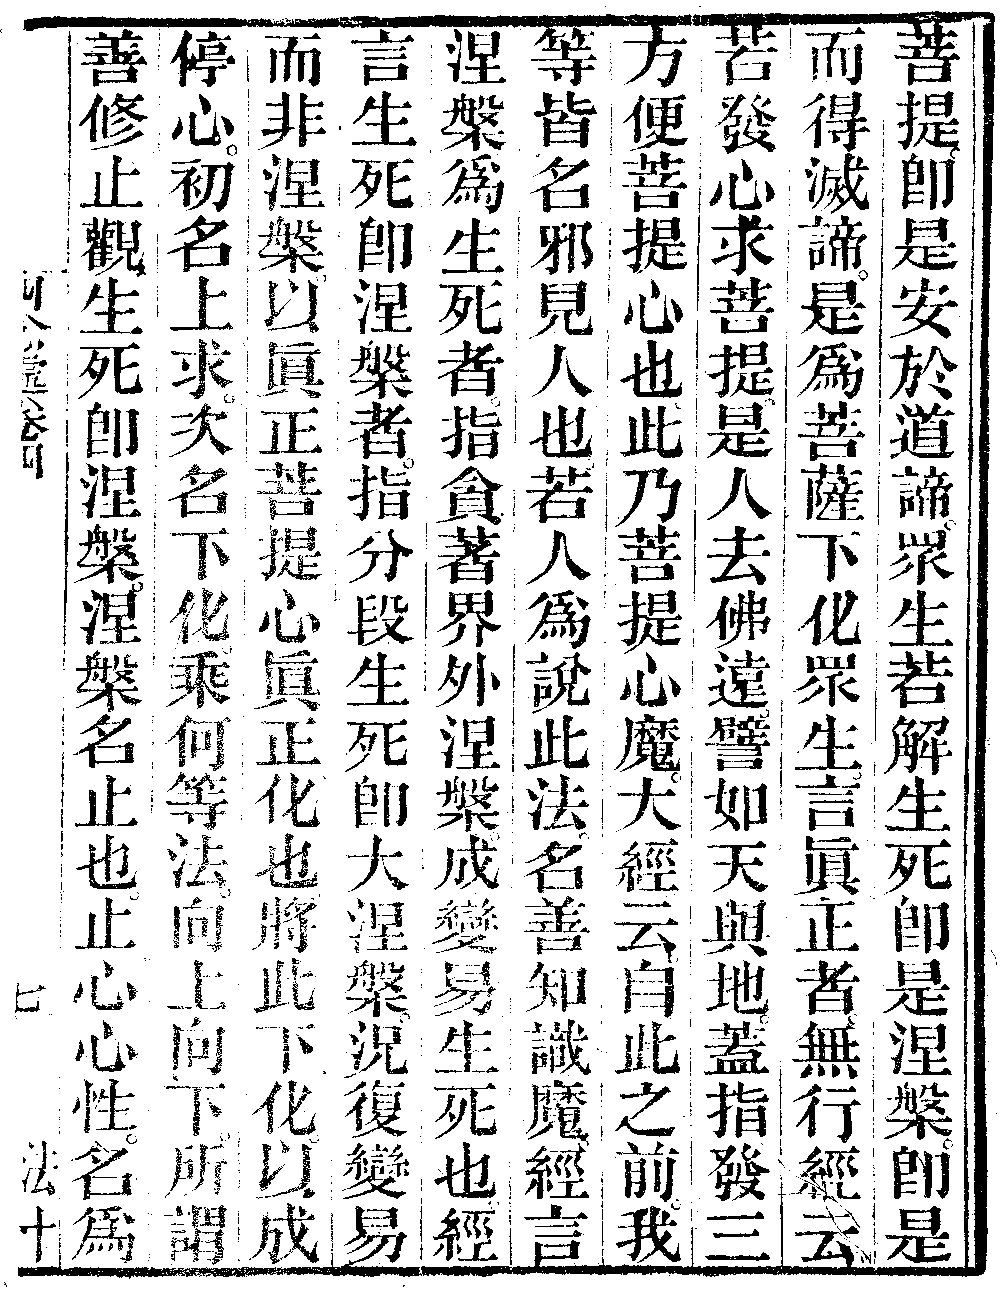 菩提。卽是安於道諦。眾生若解生死卽是涅槃。卽是
而得滅諦。是為菩薩下化眾生。言眞正者。無行經云
若發心求菩提。是人去佛遠。譬如天與地。蓋指發三
方便菩提心也。此乃菩提心魔。大經云。自此之前。我
等皆名邪見人也。若人為說此法。名善知識魔。經言
涅槃為生死者。指貪著界外涅槃。成變易生死也。經
言生死卽涅槃者。指分段生死卽大涅槃。況復變易
而非涅槃。以眞正菩提心眞正化也。將此下化。以成
停心。初名上求。次名下化。乘何等法。向上向下。所謂
善修止觀。生死卽涅槃。涅槃名止也。止心心性。名為
卷四
七
法十